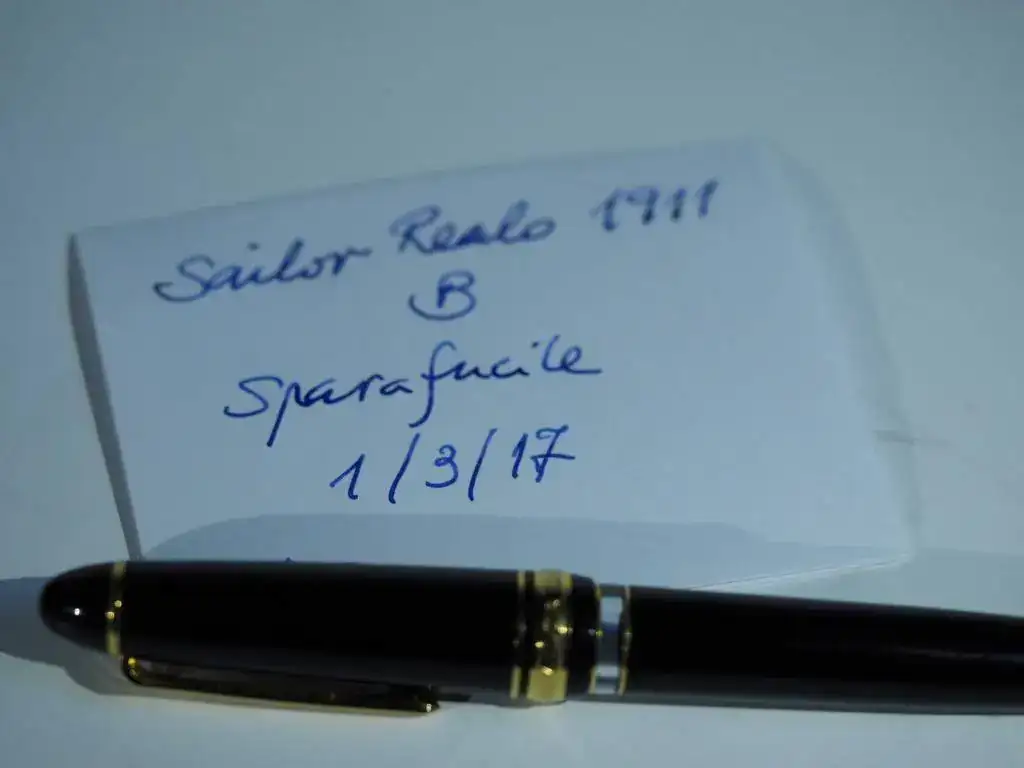 Sailor Realo 1911
B
Sparafucile
1/3/17